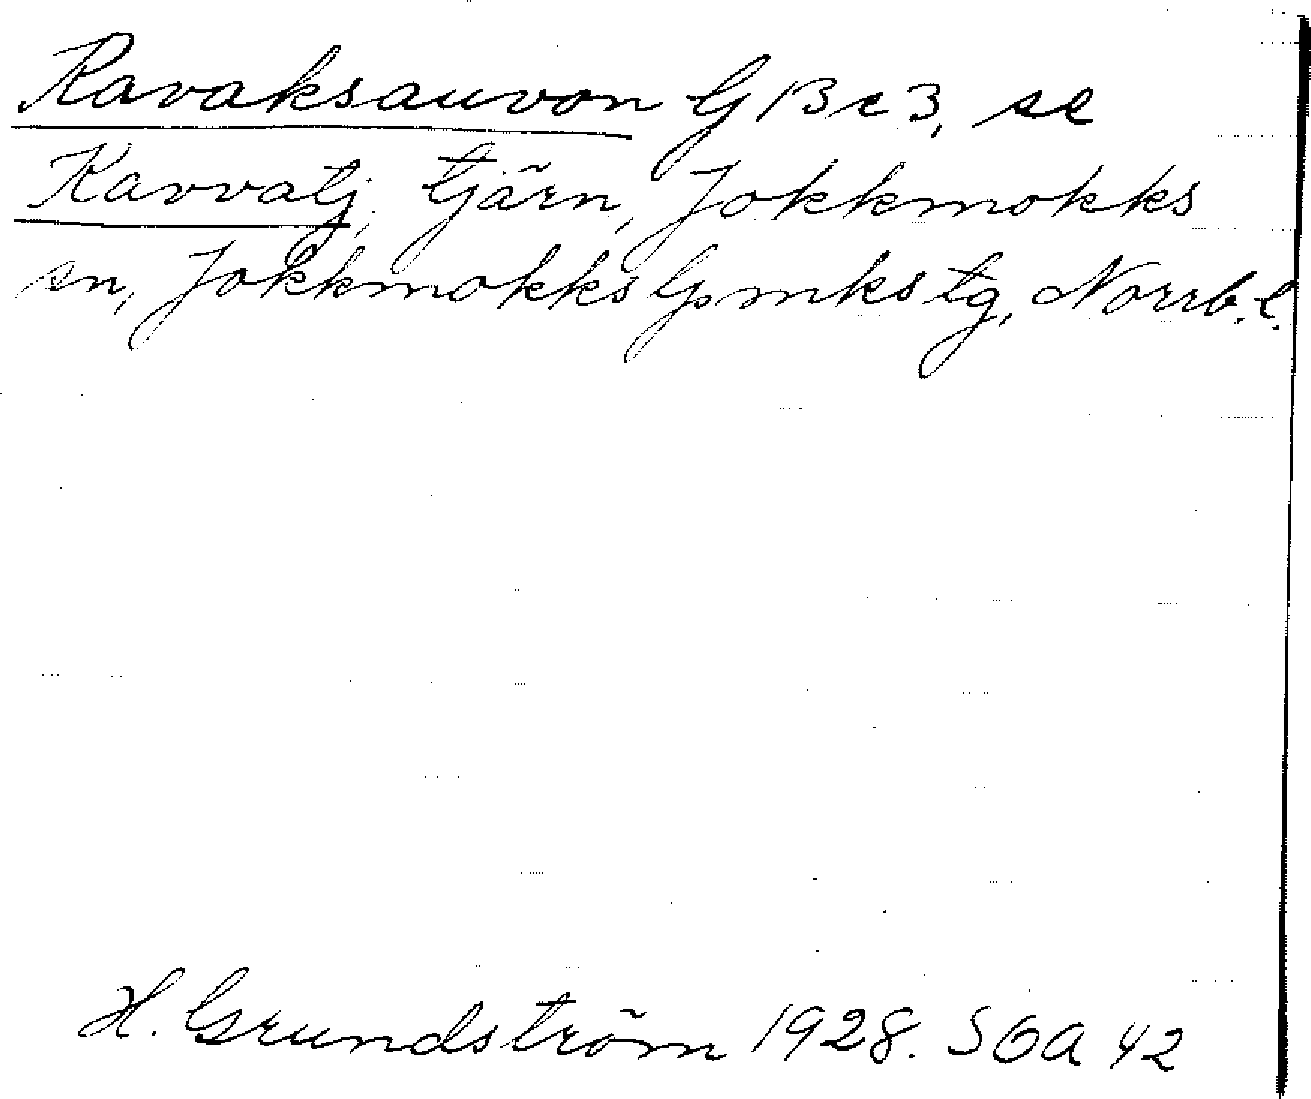 Ravaksauvon G 13 c 3, se
Kavvatj, tjärn, Jokkmokks
sn, Jokkmokks lpmks tg, Norrb. l.
H. Grundström 1928. SOA 42